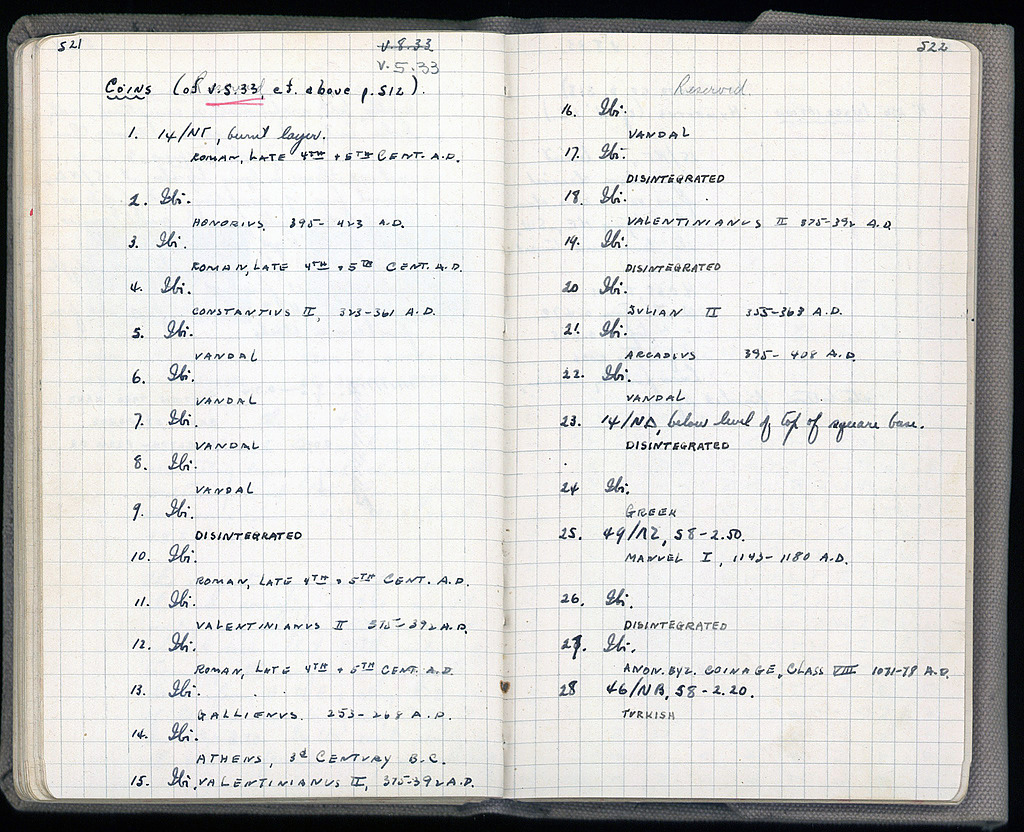 521
V.8.33
V.5.33
Coins (of V.5.33, cf. above p.512).
1. 14/ΝΓ, burnt layer.
ROMAN, LATE 4TH + 5TH CENT. A.D.
2. Ibi.
HONORIUS, 395- 423 A.D.
3. Ibi.
ROMAN, LATE 4TH + 5TH CENT. A.D.
4. Ibi.
CONSTANTIUS II, 323-361 A.D.
5. Ibi.
VANDAL
6. Ibi.
VANDAL
7. Ibi.
VANDAL
8. Ibi.
VANDAL
9. Ibi.
DISINTEGRATED
10. Ibi.
ROMAN, LATE 4TH + 5TH CENT. A.D.
11. Ibi.
VALENTINIANUS II 375-392 A.D.
12. Ibi.
ROMAN, LATE 4TH + 5TH CENT. A.D.
13. Ibi.
GALLIENUS. 253-268 A.D.
14. Ibi.
ATHENS, 3d CENTURY B.C.
15. Ibi. VALENTINIANUS II, 375-392 A.D.
522
Reserved
16. Ibi.
VANDAL
17. Ibi.
DISINTEGRATED
18. Ibi.
VALENTINIANUS II 375-392 A.D.
19. Ibi.
DISINTEGRATED
20 Ibi.
JULIAN II 355-363 A.D.
21. Ibi.
ARCADIUS 395- 408 A.D.
22. Ibi.
VANDAL
23. 14/ΝΔ, below level of top of square base.
DISINTEGRATED
24 Ibi.
GREEK
25. 58-2.50.
MANUEL I, 1143-1180 A.D.
26. Ibi.
DISINTEGRATED
27. Ibi.
ANON. BYZ. COINAGE, CLASS VIII 1071-78 A.D.
28 46/ΝΒ, 58-2.20.
TURKISH